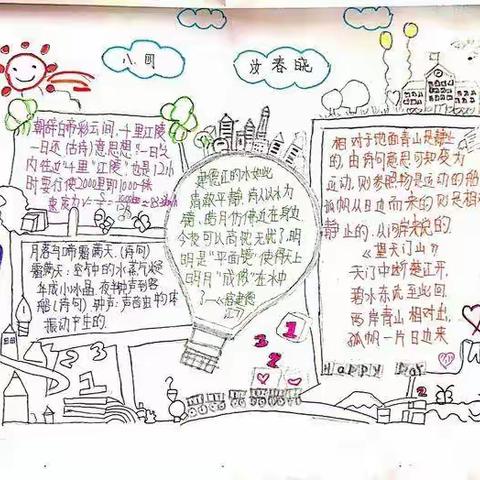 八(1)
汝春晓
朝辞白帝彩云间,千里江陵
一日还(古诗)意思想:一日之
内往返"千里"江陵"也是12小
时要行使2000里即1000千米
月落乌啼霜满天.(诗句)
霜满天:空气中的水蒸气凝
华成小冰晶,夜半钟声到客
船(诗句)钟声:声音由物体
振动产生的.
建德江的水如此
清澈平静,诗人以水为
镜,皓月仿佛近在身边
今夜可以高枕无忧了,明
明是"平面镜"使得天上
明月"成像"在水中
了——《宿建德
江》
相对于地面青山是静止
的,由诗句意思可知变为
运动,则参照物是运动的船
孤帆从日边而来的则是相对
静止的.从两岸来说的
《望天门山》
天门中断楚江开,
碧水东流至此回.
两岸青山相对出,
孤帆一片日边来
1
2
3
1 2 3
HAPPY Day
2